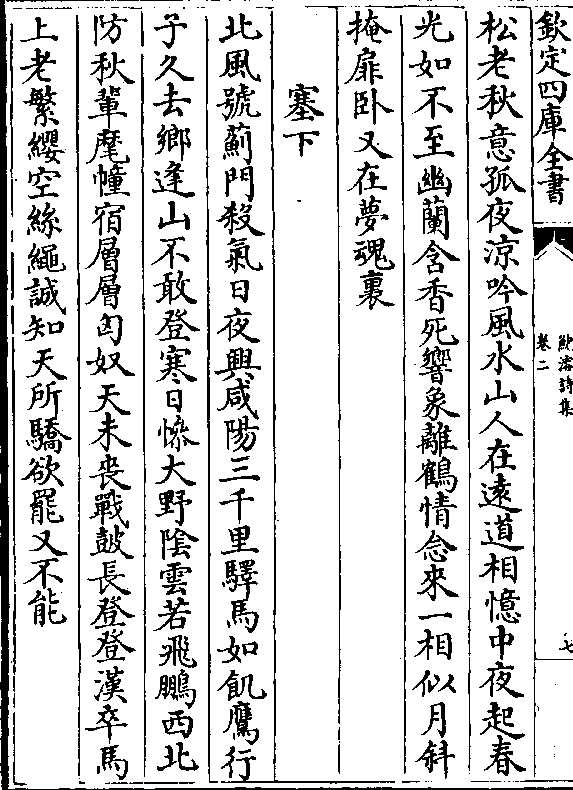 欽定四庫全書
鮑溶詩集
卷二
七
松老秋意孤夜涼吟風水山人在遠道相憶中夜起春
光如不至幽蘭含香死響象離鶴情念來一相似月斜
掩扉卧又在夢魂裏
塞下
北風號薊門殺氣日夜興咸陽三千里驛馬如飢鷹行
子久去鄉逢山不敢登寒日慘大野陰雲若飛鵬西北
防秋軰麾幢宿層層匈奴天未喪戰皷長登登漢卒馬
上老繁纓空絲繩誠知天所驕欲罷又不能